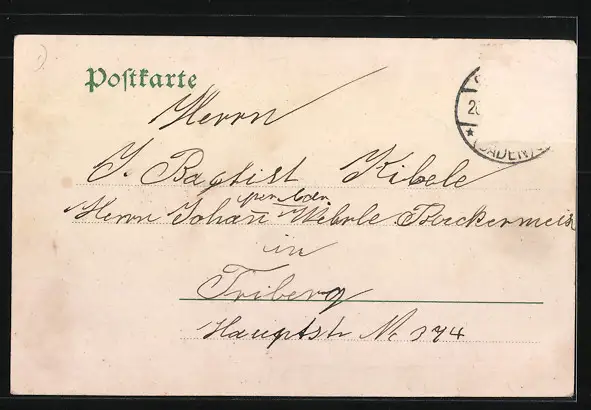 Postkarte
Herrn
J. Baptist Kibele
Herrn Johan Wehrle Beckermeis
in
Triberg
Hauptstr № 374
(BADEN)